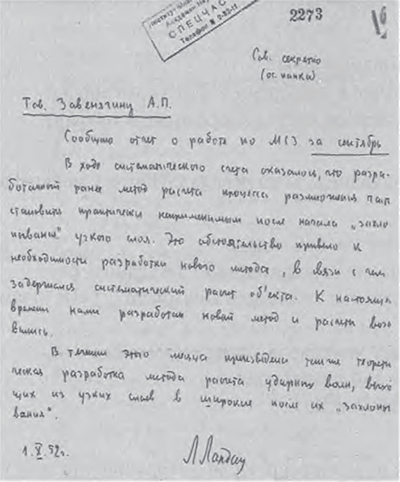 Институт
Академии Наук
СПЕЦЧАС
Телефон
2273
Сов. секретно
(ос. папка)
Тов. Завенягину А.П.
Сообщаю отчет о работе по МСЗ за сентябрь
В ходе систематического счета оказалось, что разра-
ботанный ранее метод расчета процесса размножения
становится практически неприменимым после начала „захло
пывания" узкого слоя. Это обстоятельство привело к
необходимости разработки нового метода, в связи с чем
задержался систематический расчет об'екта. К настоящ
времени нами разработан новый метод и расчеты возо
вились.
В течение этого месяца произведена также теорети
ческая разработка метода расчета ударных волн, выхо
щих из узких слоев в широкие после их „захлопы
вания".
1.X.52г.
Л Ландау